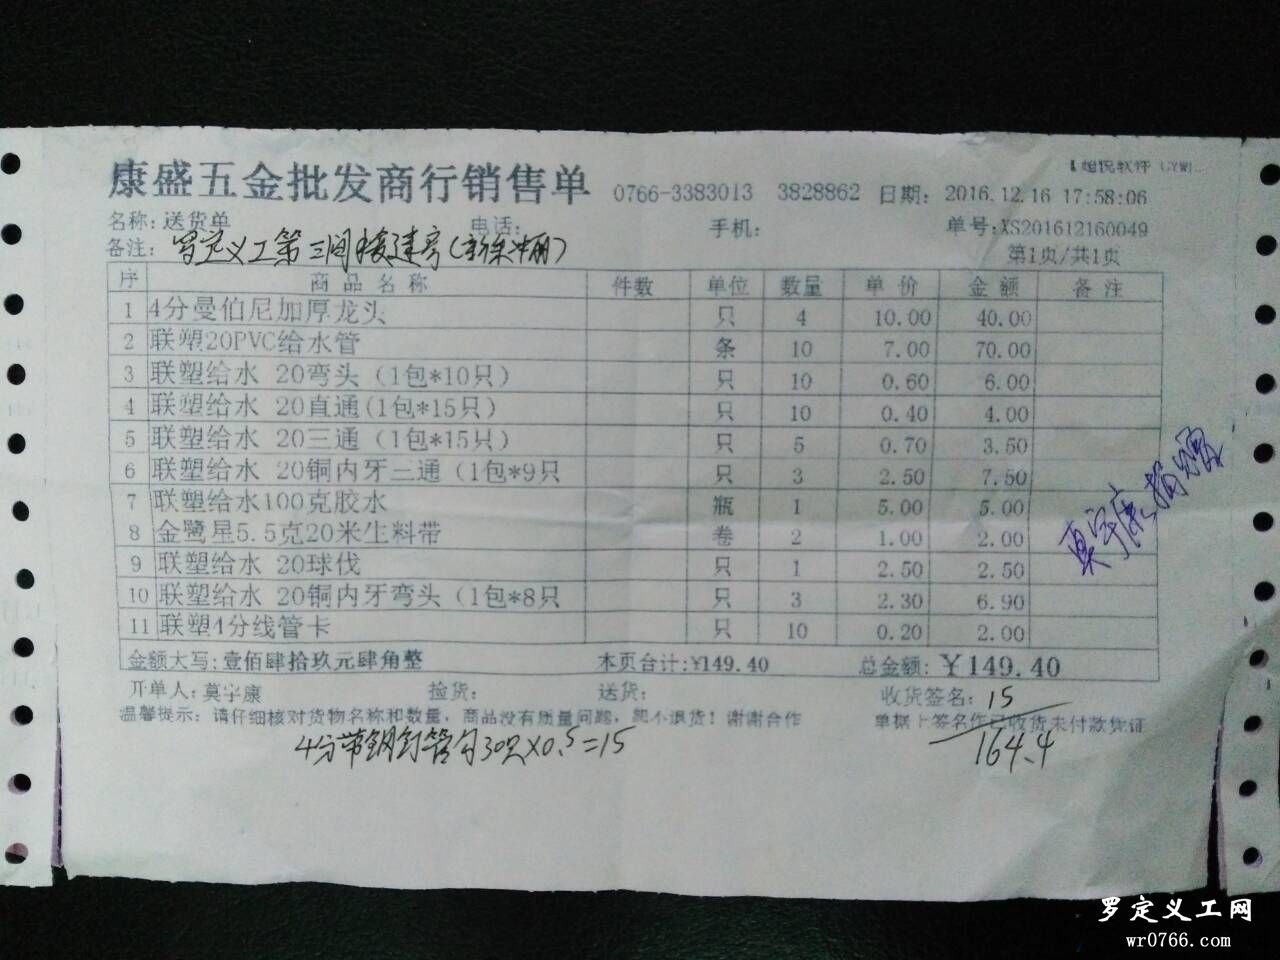 康盛五金批发商行销售单 0766-3383013 3828862 日期: 2016.12.16 17:58:06
名称: 送货单 电话: 手机: 单号:XS201612160049
备注: 罗定义工第三间接建房 第1页/共1页
序 商品名称 件数 单位 数量 单价 金额 备注
1 4分曼伯尼加厚龙头 只 4 10.00 40.00
2 联塑20PVC给水管 条 10 7.00 70.00
3 联塑给水 20弯头 (1包*10只) 只 10 0.60 6.00
4 联塑给水 20直通(1包*15只) 只 10 0.40 4.00
5 联塑给水 20三通 (1包*15只) 只 5 0.70 3.50
6 联塑给水 20铜内牙三通 (1包*9只 只 3 2.50 7.50
7 联塑给水100克胶水 瓶 1 5.00 5.00
8 金鹭星5.5克20米生料带 卷 2 1.00 2.00
9 联塑给水 20球伐 只 1 2.50 2.50
10 联塑给水 20铜内牙弯头 (1包*8只 只 3 2.30 6.90
11 联塑4分线管卡 只 10 0.20 2.00
金额大写:壹佰肆拾玖元肆角整 本页合计:¥149.40 总金额: ¥149.40
开单人: 莫字康 捡货: 送货: 收货签名: 15
温馨提示: 请仔细核对货物名称和数量, 商品没有质量问题, 恕不退货! 谢谢合作 单据上签名作已收货未付款凭证
4分带钢钉管勾30只×0.5=15 164.4
莫字康捐
罗定义工网
wr0766.com